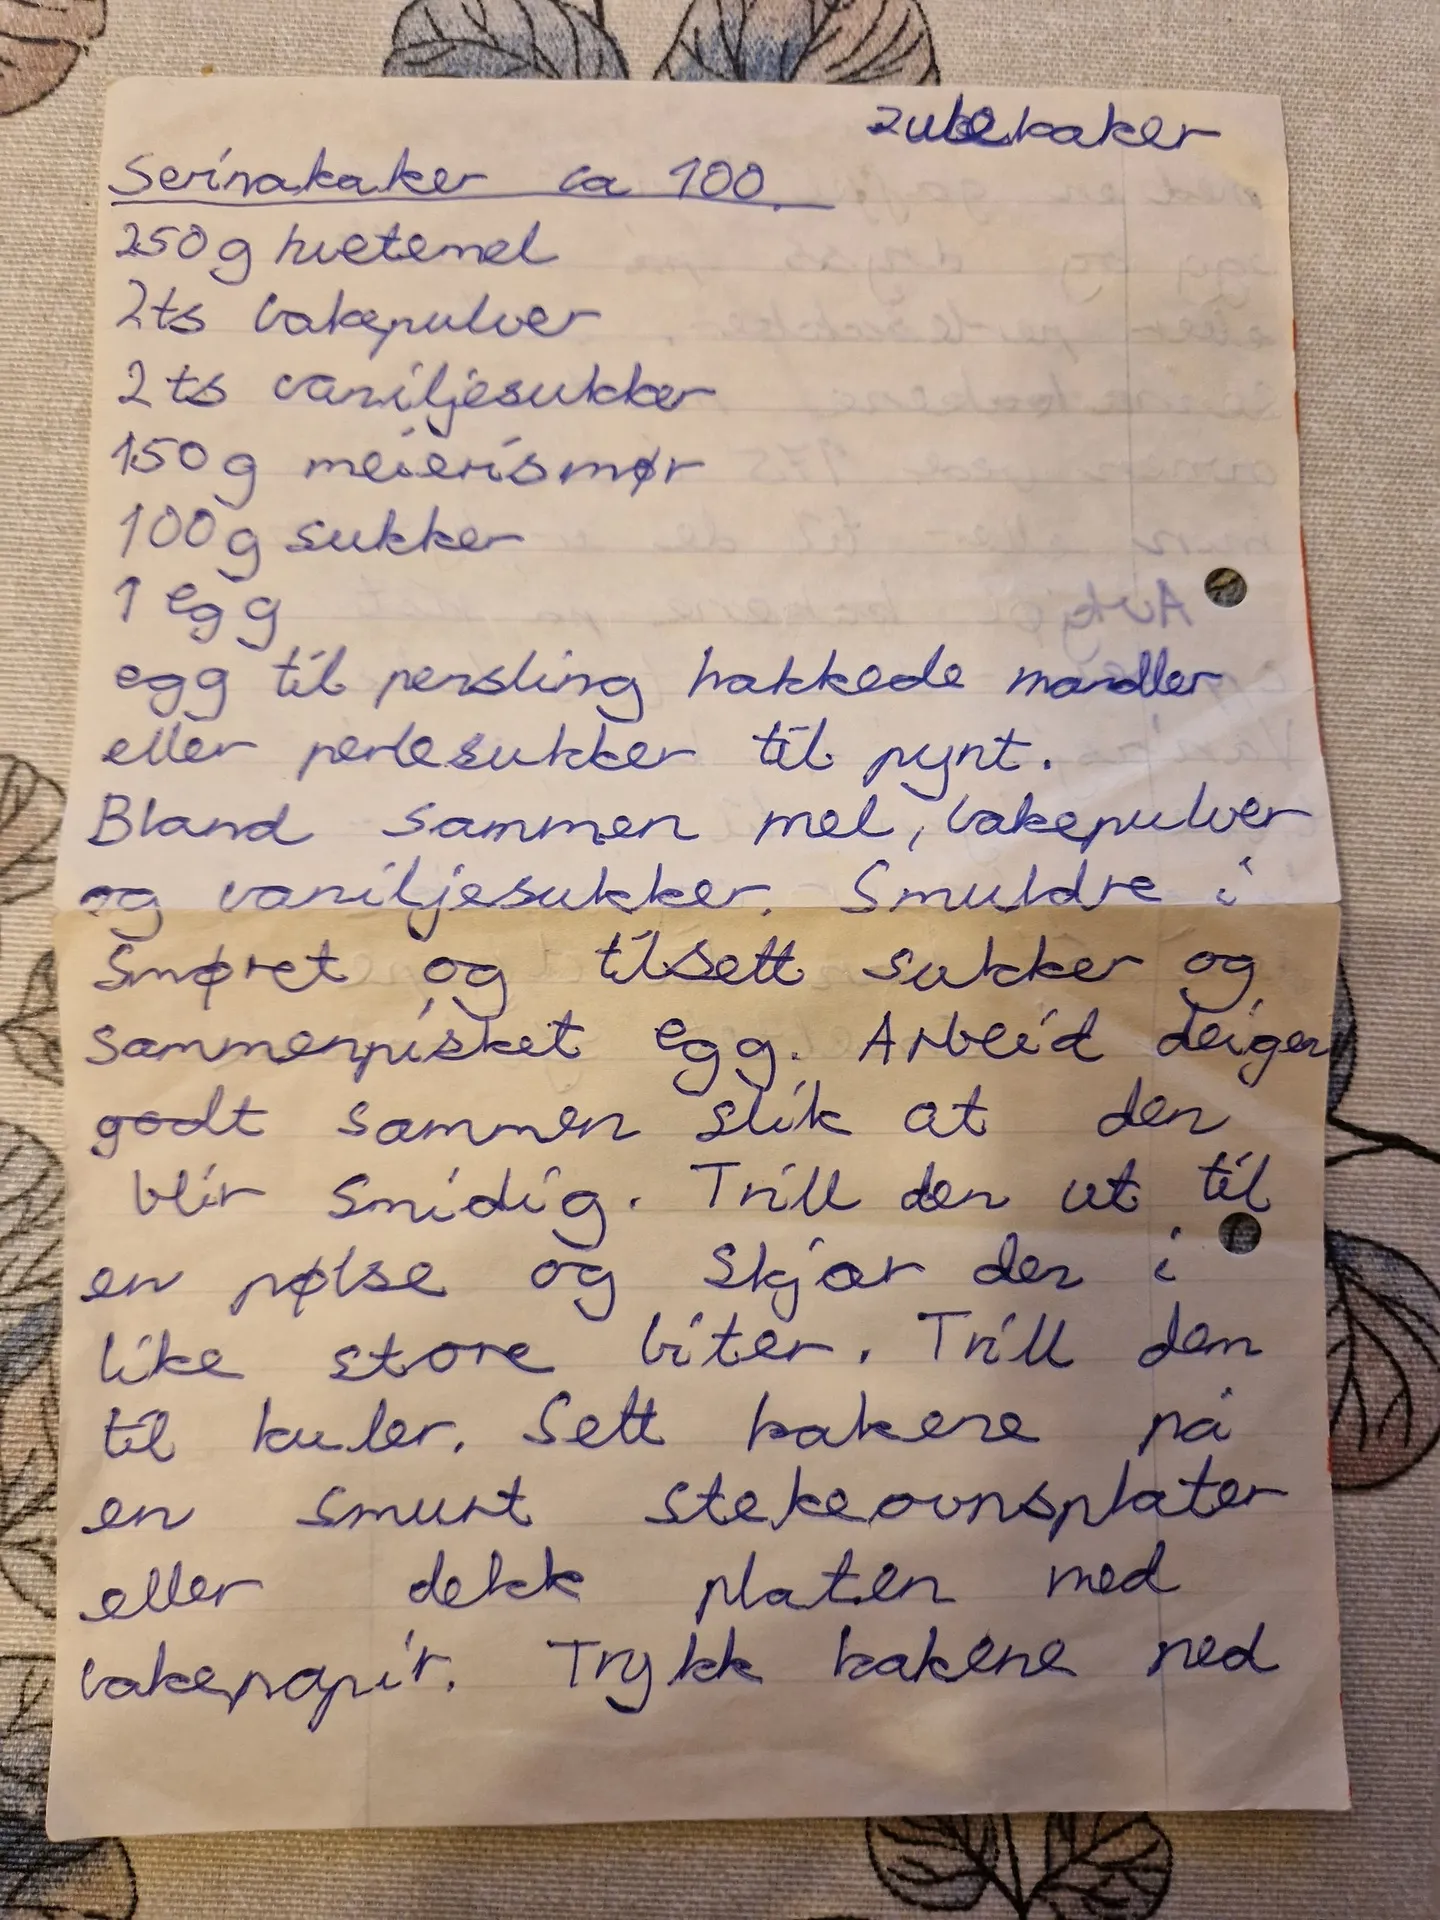 Serinakaker ca 100.
250g hvetemel
2ts bakepulver
2 ts vaniljesukker
150g meierismør
100g sukker
1 egg
egg til pensling hakkede mandler
eller perlesukker til pynt.
Bland sammen mel, bakepulver
og vaniljesukker. Smuldre i
Smøret og tilsett sukker og
sammenpisket egg. Arbeid deigen
godt sammen slik at den
blir smidig. Trill den ut til
en pølse og skjær den i
like store biter. Trill dem
til kuler. Sett kakene på
en smurt stekeovnsplater
eller dekk platen med
bakepapir. Trykk kakene ned